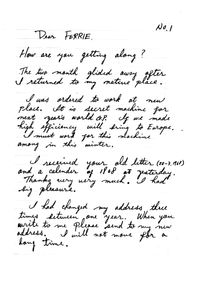 No.1
Dear FORRIE.
How are you getting along?
The two month glided away after
I returned to my native place.
I was ordered to work at new
place. It is secret machine for
next year's world G.P. If we made
high efficiency will bring to Europe.
I must work for this machine
among in this winter.
I received your old letter
and a calender of 1968 at yesterday.
Thanks very very much. I had
big pleasure.
I had changed my address three
times between one year. When you
write to me please send to my new
address. I will not move for a
long time.